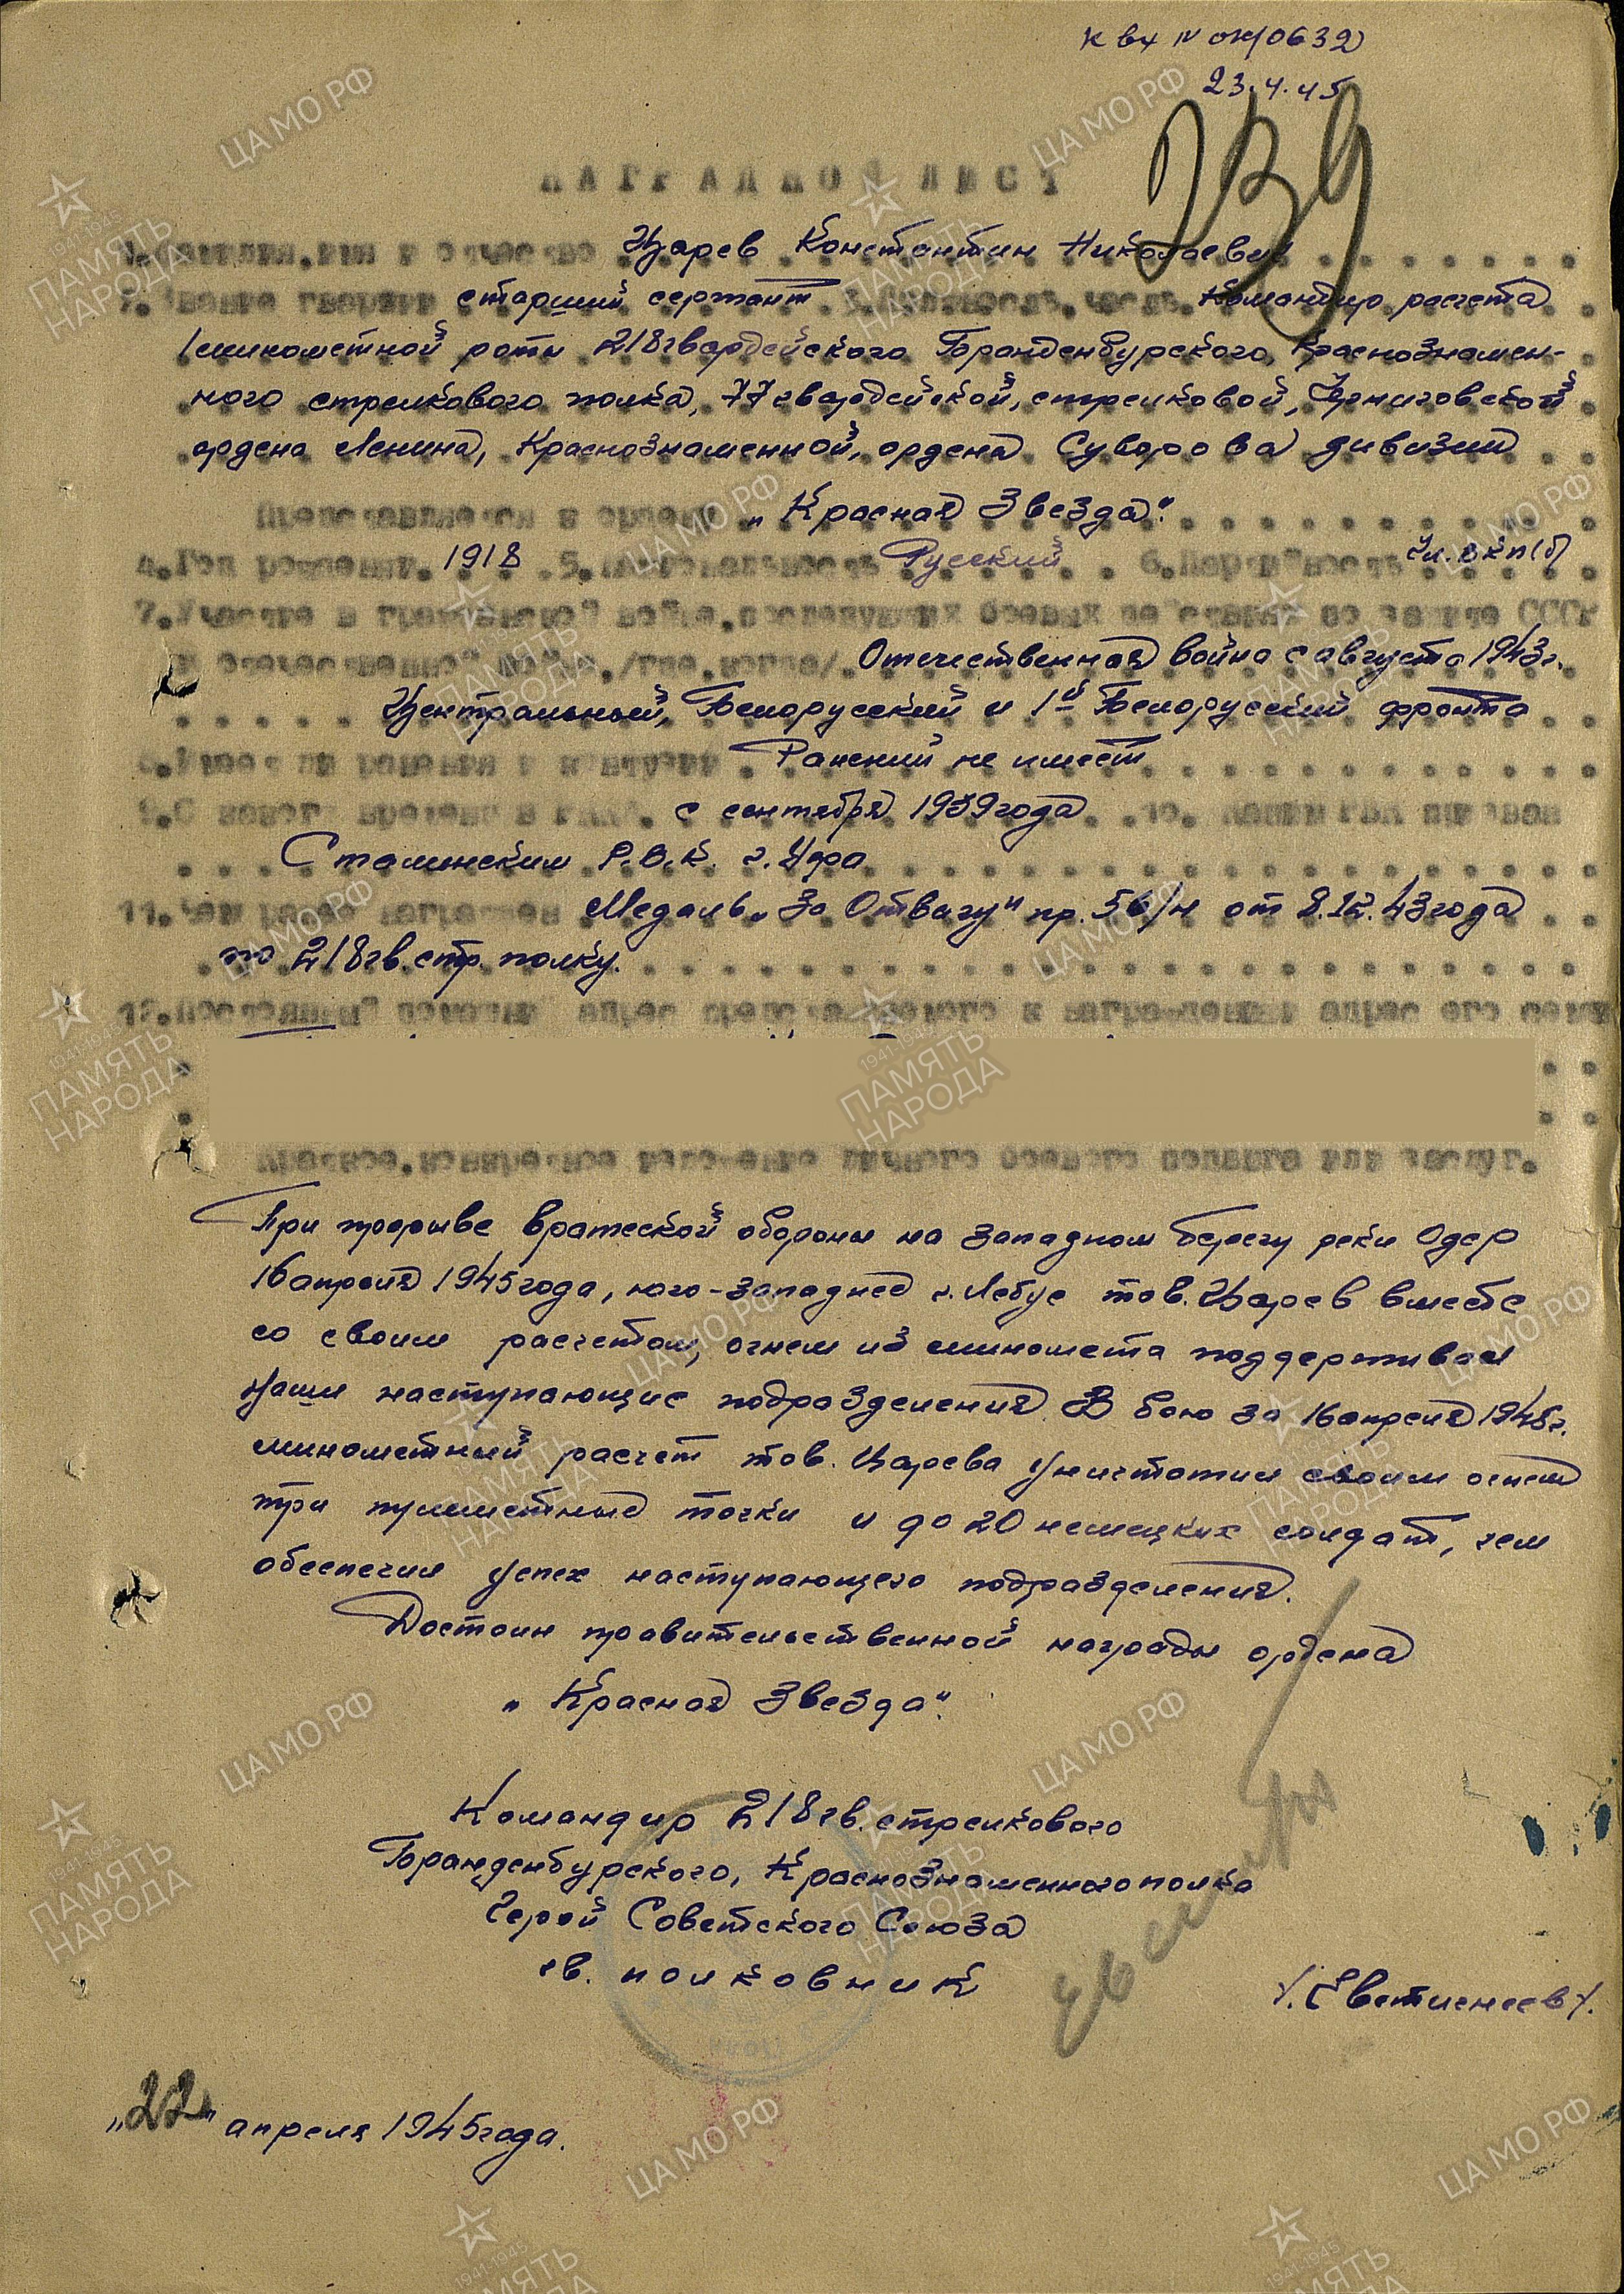 к вх № ок/0632
23.4.45
239
НАГРАДНОЙ ЛИСТ
1. Фамилия, имя и отчество Царев Константин Николаевич
2. Звание гвардии старший сержант 3. Должность, часть Командир расчета
минометной роты 218 гвардейского Бранденбургского, Краснознамен-
ного стрелкового полка, 77 гвардейской, стрелковой, Черниговской
ордена Ленина, Краснознаменной, ордена Суворова дивизии
Представляется к ордену "Красная Звезда".
4. Год рождения 1918 5. Национальность Русский 6. Партийность Чл. ВКП(б)
7. Участие в гражданской войне, последующих боевых действиях по защите СССР
и отечественной войне, /где, когда/ Отечественная война с августа 1943 г.
Центральный, Белорусский и 1й Белорусский фронта
8. Имеет ли ранения и контузии Ранений не имеет
9. С какого времени в РККА с сентября 1939 года 10. Каким РВК призван
Сталинским Р.В.К. г. Уфа
11. Чем ранее награжден Медаль "За Отвагу" пр. 56/н от 8.12.43 года
по 218 гв. стр. полку.
12. Постоянный домашний адрес представляемого к награждению и адрес его семьи
Краткое, конкретное изложение личного боевого подвига или заслуг.
При прорыве вражеской обороны на западном берегу реки Одер
16 апреля 1945 года, юго-западнее г. Лебус тов. Царев вместе
со своим расчетом, огнем из миномета поддерживал
наши наступающие подразделения. В бою за 16 апреля 1945 г.
минометный расчет тов. Царева уничтожил своим огнем
три пулеметные точки и до 20 немецких солдат, чем
обеспечил успех наступающего подразделения.
Достоин правительственной награды ордена
"Красная Звезда".
Командир 218 гв. стрелкового
Бранденбургского, Краснознаменного полка
Герой Советского Союза
гв. полковник /. Евстигнеев /.
"22" апреля 1945 года.
ЦА МО РФ
1941-1945
ПАМЯТЬ
НАРОДА